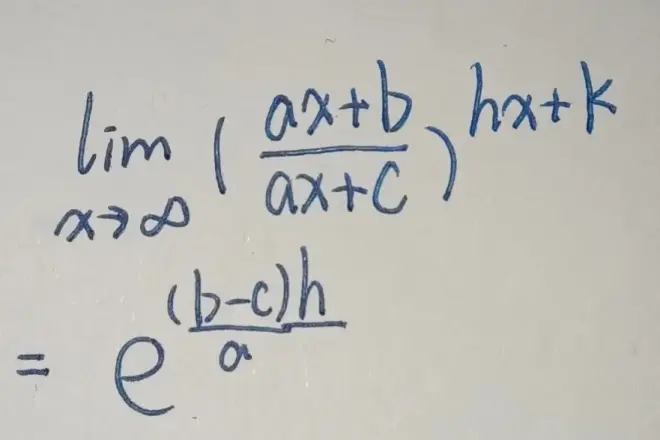 lim x→∞ ( (ax+b)/(ax+c) )^(hx+k)
= e^((b-c)h/a)